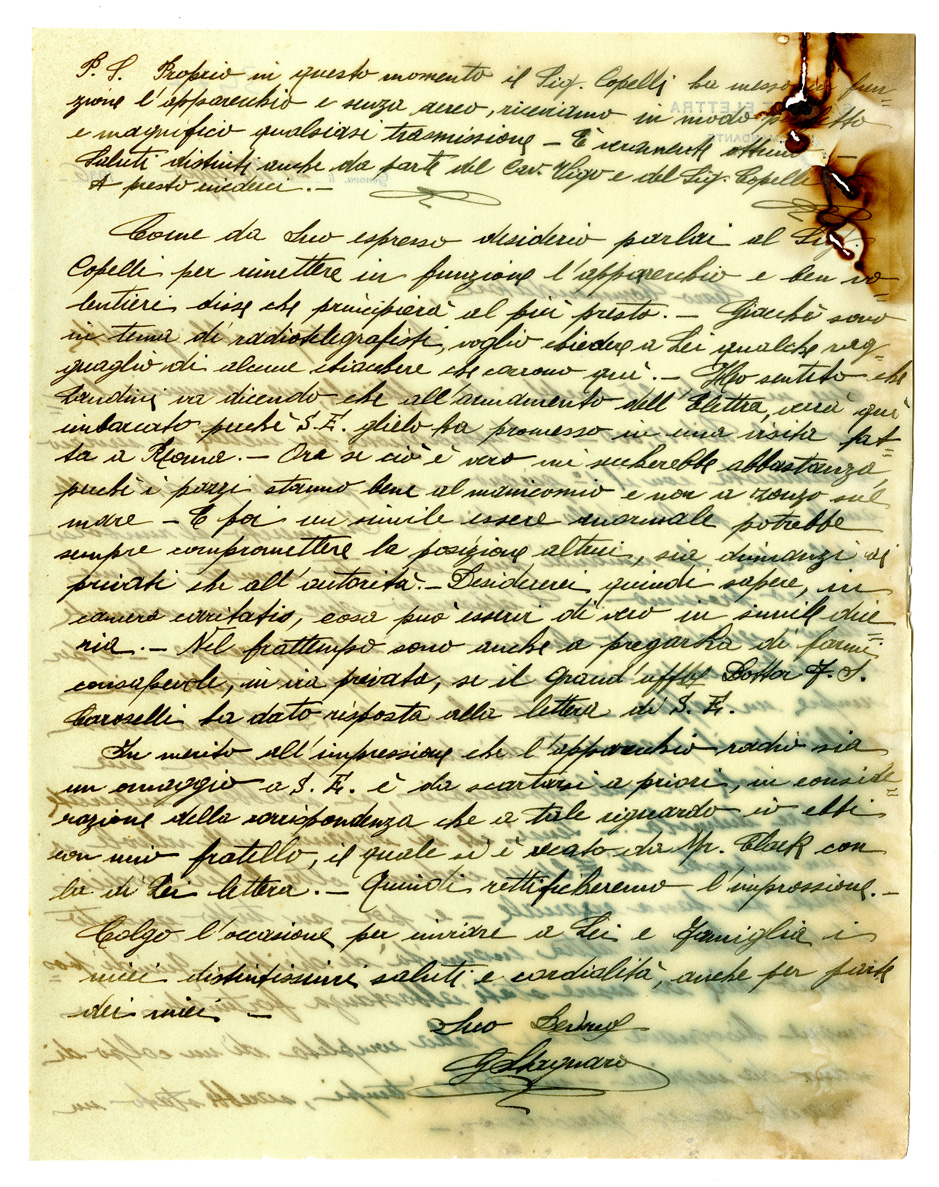 P. S. Proprio in questo momento il Sig. Copelli ha messo in fun=
zione l'apparecchio e senza aereo, riceviamo in modo perfetto
e magnifico qualsiasi trasmissione – È veramente ottimo –
Saluti distinti anche da parte del Cav. Vigo e del Sig. Copelli
A presto vederci. –
Come da Suo espresso desiderio parlai al Sig.
Copelli per rimettere in funzione l'apparecchio e ben vo=
lentieri disse che principierà al più presto. – Giacchè sono
in tema di radiotelegrafisti, voglio chiedere a Lei qualche rag=
guaglio di alcune chiacchere che corrono quì. – Ho sentito che
Landini va dicendo che all'armamento dell'Elettra, verrà quì
imbarcato perchè S. E. glielo ha promesso in una visita fat=
ta a Roma. – Ora se ciò è vero mi seccherebbe abbastanza
perchè i pazzi stanno bene al manicomio e non a zonzo sul
mare – E poi un simile essere anormale potrebbe
sempre compromettere la posizione altrui, sia dinanzi ai
privati che all'autorità. – Desidererei quindi sapere, in
camera caritatis, cosa può esservi di vero in simile dice=
ria. – Nel frattempo sono anche a pregarLa di farmi
consapevole, in via privata, se il Grand'Uff. Dottor F. S.
Caroselli ha dato risposta alla lettera di S. E.
In merito all'impressione che l'apparecchio radio sia
un omaggio a S. E. è da scartarsi a priori, in conside=
razione della corrispondenza che a tale riguardo io ebbi
con mio fratello, il quale si è recato da Mr. Clark con
la di Lei lettera. – Quindi rettificheremo l'impressione. –
Colgo l'occasione per inviare a Lei e Famiglia i
miei distintissimi saluti e cordialità, anche per parte
dei miei –
Suo
GStagnaro